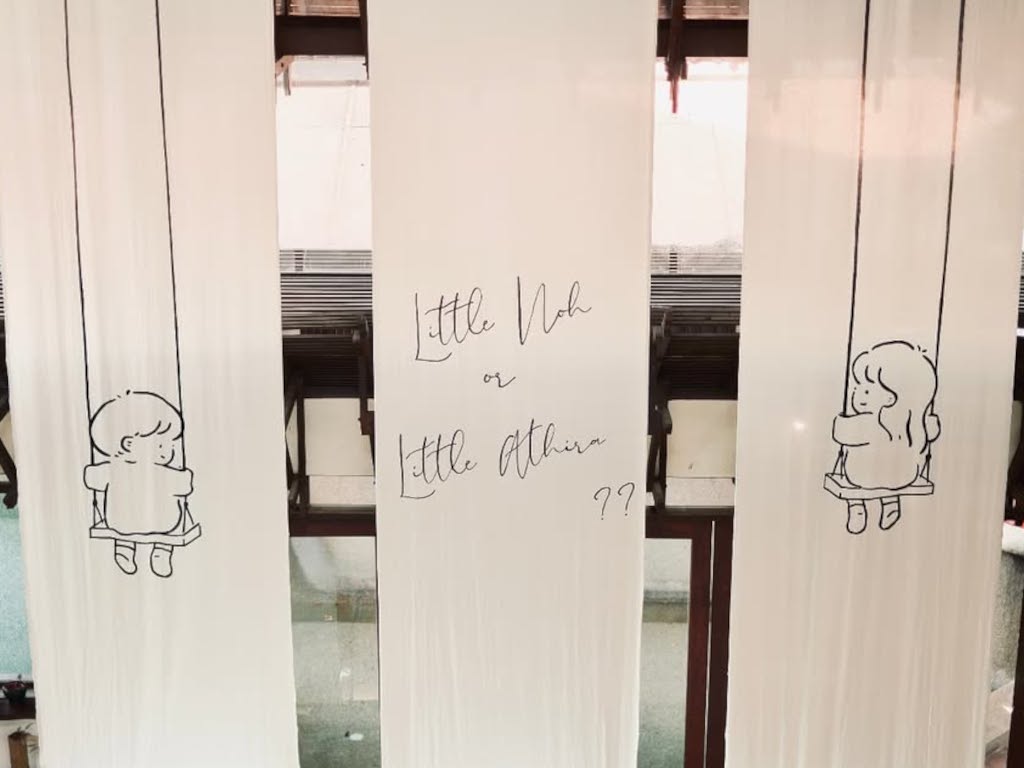 Little Noh
or
Little Athira
??